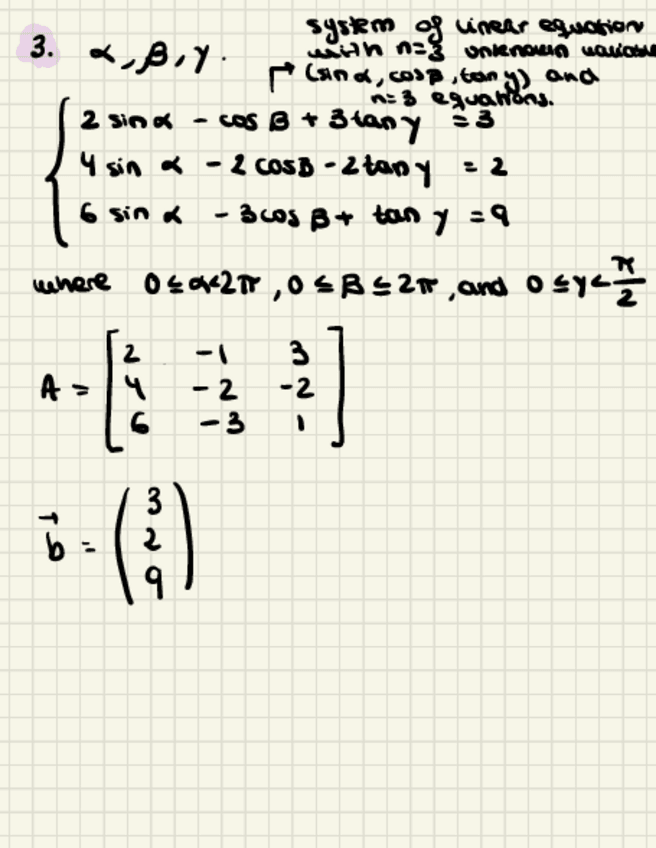 3. α, β, γ. system of linear equation
with n=3 unknown variable
(sin α, cos β, tan γ) and
n=3 equations.
2 sin α - cos β + 3 tan γ = 3
4 sin α - 2 cos β - 2 tan γ = 2
6 sin α - 3 cos β + tan γ = 9
where 0 ≤ α < 2π, 0 ≤ β ≤ 2π, and 0 ≤ γ < π/2
A = [ 2 -1 3
4 -2 -2
6 -3 1 ]
b⃗ = ( 3
2
9 )